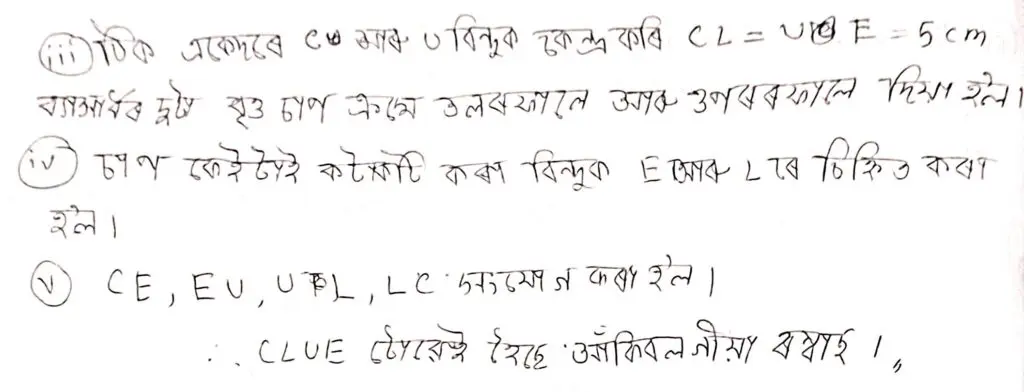 (iii) ঠিক একেদৰে C আৰু U বিন্দুক কেন্দ্ৰ কৰি CL = UE = 5 cm
ব্যাসাৰ্ধৰ দুটা বৃত্ত চাপ ক্ৰমে তলৰফালে আৰু ওপৰৰফালে দিয়া হ'ল।
(iv) চাপ কেইটাই কটাকটি কৰা বিন্দুক E আৰু L ৰে চিহ্নিত কৰা
হ'ল।
(v) CE, EU, UL, LC সংযোগ কৰা হ'ল।
∴ CLUE টোৱেই হৈছে আঁকিবলগীয়া ৰম্বাছ।